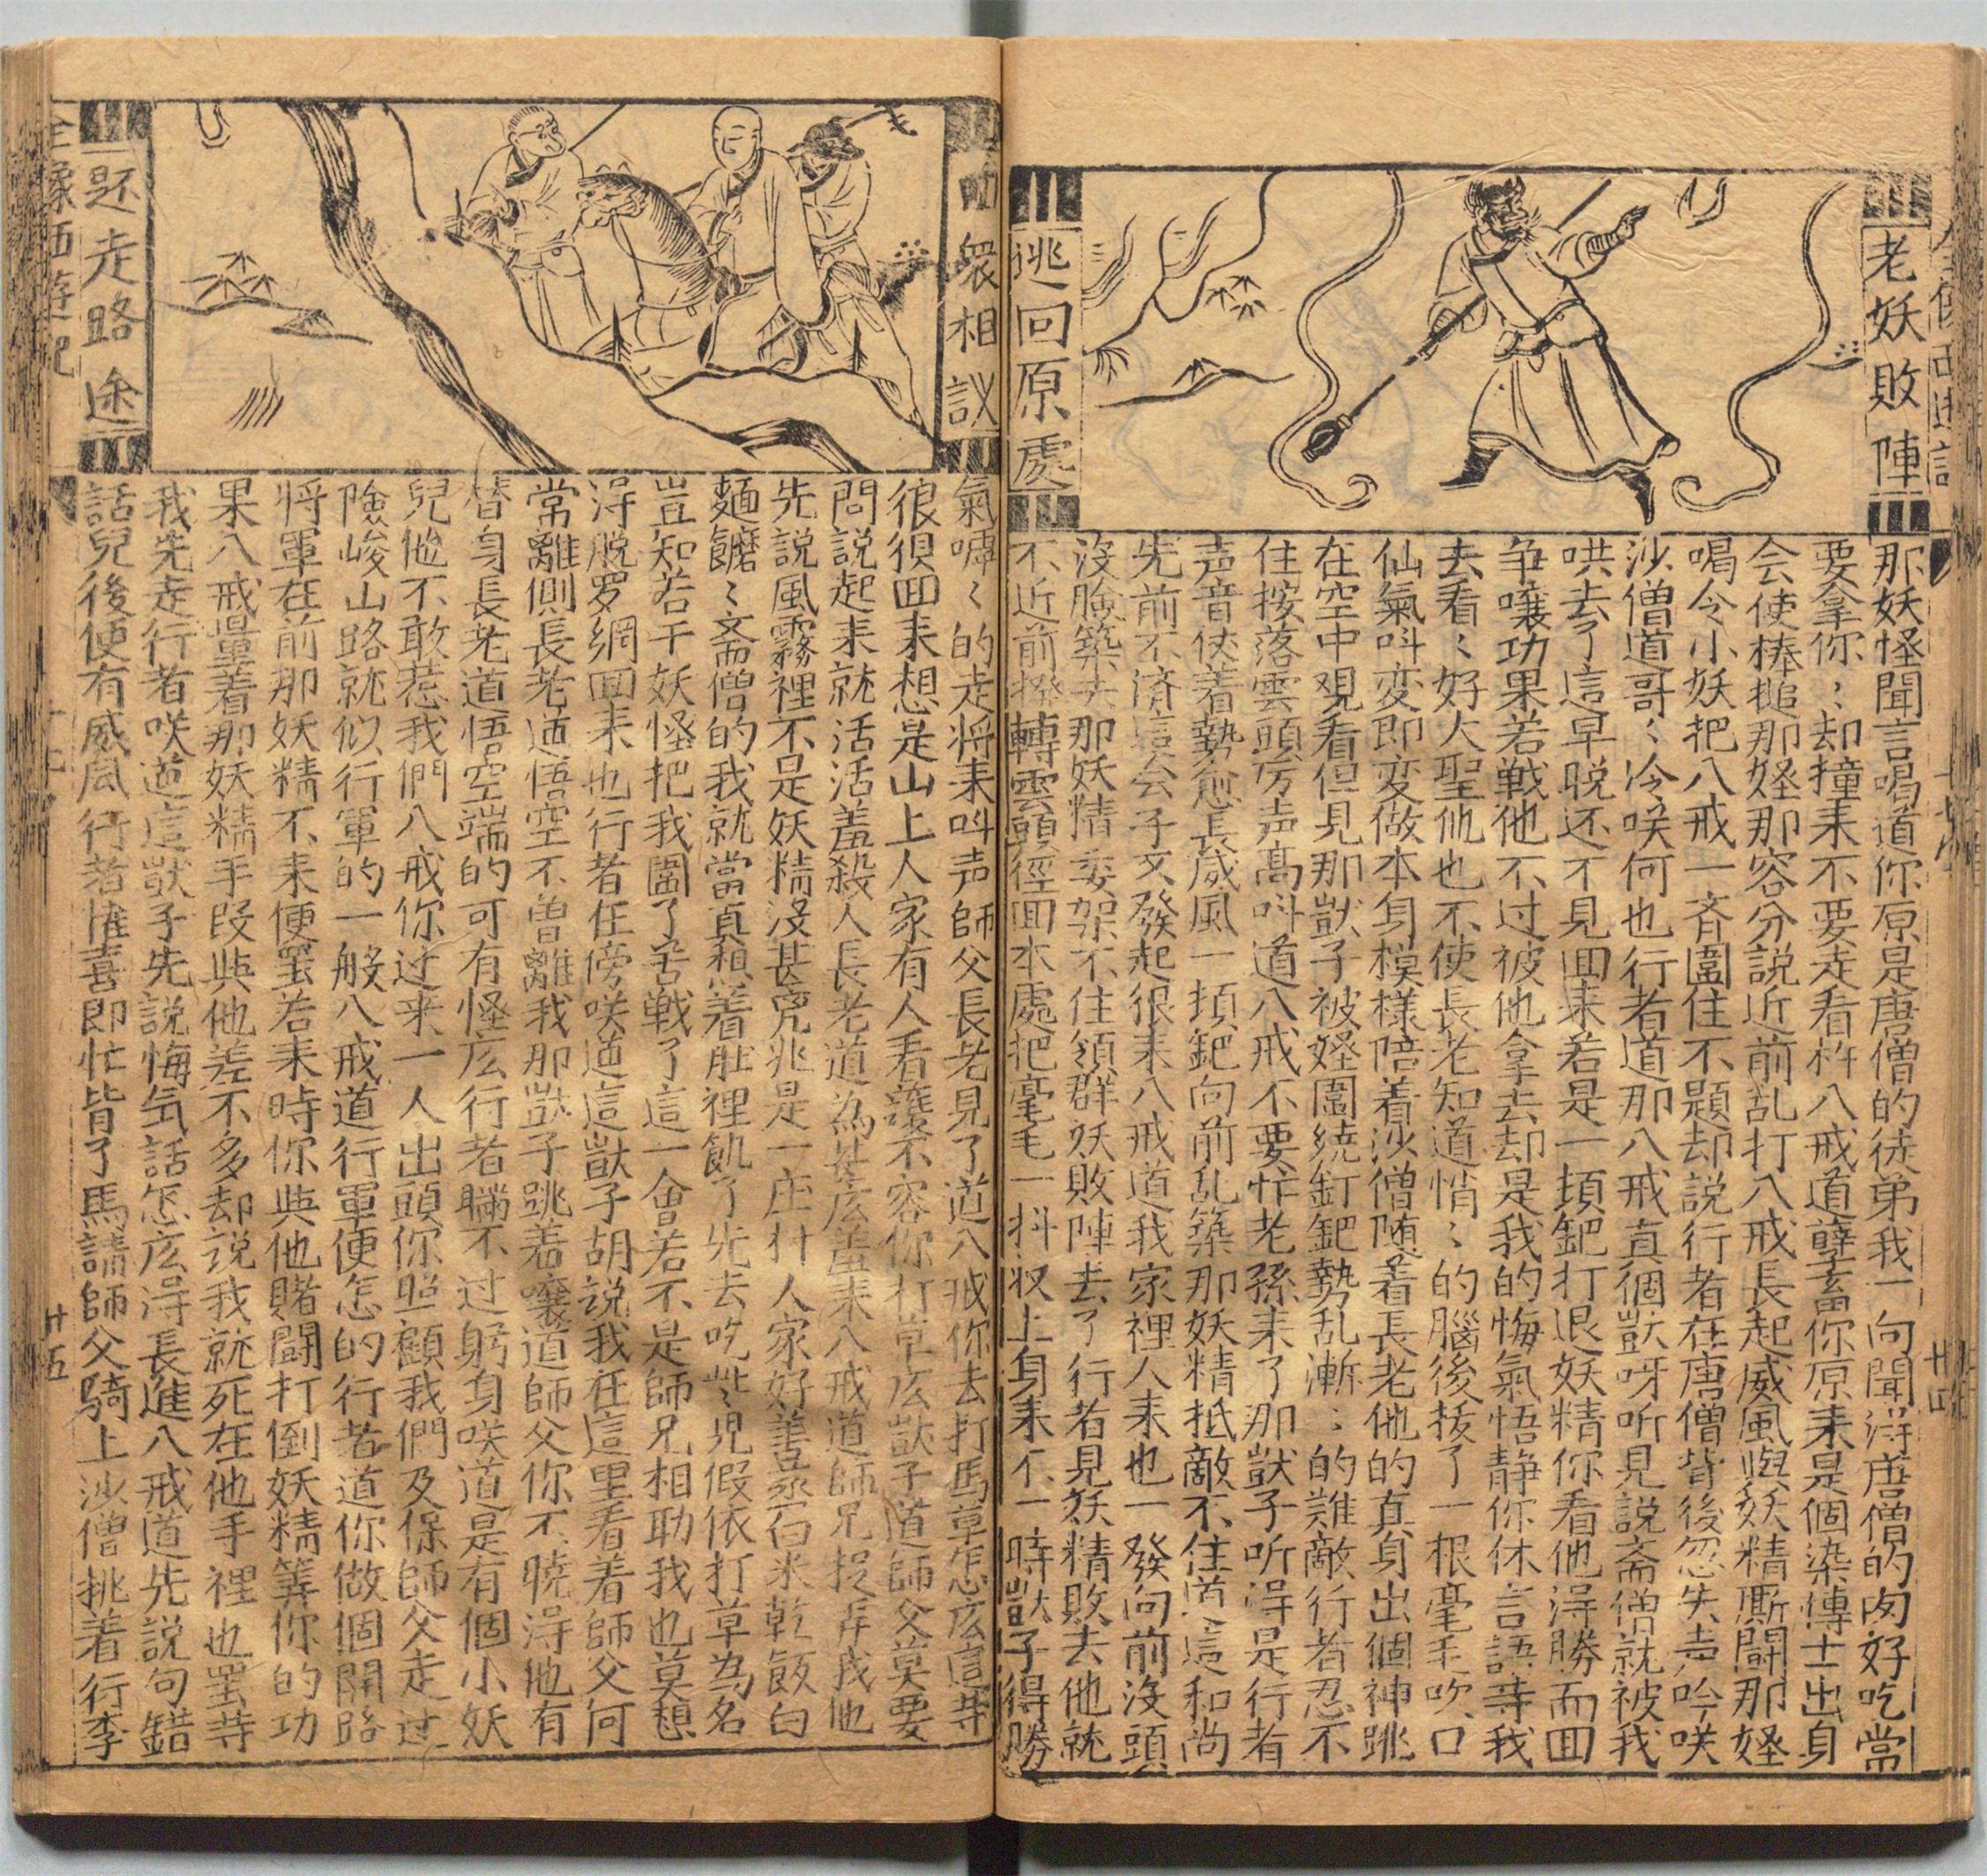 老妖敗陣
逃回原處
那妖怪聞言喝道你原是唐僧的徒弟我一向聞淂唐僧的肉好吃當
要拿你〻却撞来不要走看杵八戒道孽畜你原来是個染博士出身
会使棒搥那妖怪那容分説近前乱打八戒長起威風與妖精厮鬪那怪
喝令小妖把八戒一斉圍住不題却説行者在唐僧背後忽失声吟咲
沙僧道哥〻冷咲何也行者道那八戒真個獃呀听見説斋僧就被我
哄去了這早晚还不見回来若是一頓鈀打退妖精你看他淂勝而回
争嚷功果若戰他不过被他拿去却是我的悔氣悟静你休言語等我
去看〻好大聖他也不使長老知道悄〻的腦後拔了一根毫毛吹口
仙氣呌変即変做本身模様陪着沙僧随着長老他的真身出個神跳
在空中观看但見那獃子被怪圍繞釘鈀勢乱漸〻的難敵行者忍不
住按落雲頭厉声高呌道八戒不要忙老孫来了那獃子听淂是行者
声音伏着勢愈長威風一頓鈀向前乱築那妖精抵敵不住道這和尚
先前不済這会子又發起很来八戒道我家裡人来也一發向前沒頭
沒臉築去那妖精委架不住領群妖敗陣去了行者見妖精敗去他就
不近前撥轉雲頭徑回本處把毫毛一抖収上身来不一時獃子得勝
四衆相議
題走路途
氣嘑〻的走将来呌声師父長老見了道八戒你去打馬草怎庅這等
很狽回来想是山上人家有人看護不容你打草庅獃子道師父莫要
問説起来就活活羞殺人長老道為甚庅羞来八戒道師兄捉弄我他
先説風霧裡不是妖精沒甚凶兆是一庄村人家好善蒸白米乾飯白
麵饝〻斋僧的我就當真想着肚裡飢了先去吃些児假依打草為名
豈知若干妖怪把我圍了苦戰了這一會若不是師兄相助我也莫想
淂脱罗網回来也行者在傍咲道這獃子胡説我在這里看着師父何
常離側長老道悟空不曾離我那獃子跳着嚷道師父你不暁淂他有
替身長老道悟空端的可有怪庅行者瞞不过躬身咲道是有個小妖
兒他不敢惹我們八戒你近来一人出頭你照顧我們及保師父走过
險峻山路就似行軍的一般八戒道行軍便怎的行者道你做個開路
将軍在前那妖精不来便罢若来時你與他賭鬪打倒妖精筭你的功
果八戒量着那妖精手段與他差不多却説我就死在他手裡也罢等
我先走行者咲道這獃子先説悔気話怎庅淂長進八戒道先説句錯
話兒後便有威風行者惟喜即忙皆了馬請師父騎上沙僧挑着行李
全像西遊記
廿五